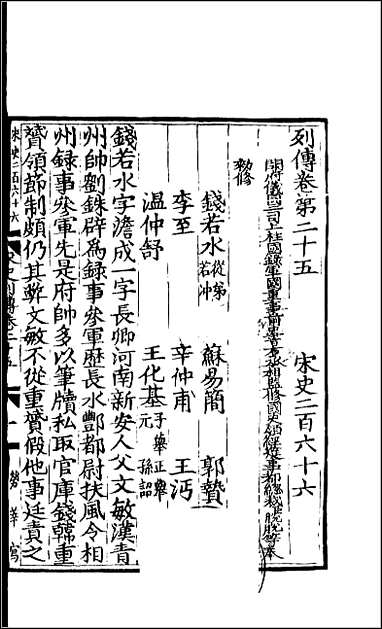 列傳卷第二十五　宋史二百六十六
開府儀同三司上柱國錄軍國重事前中書右丞相監修國史領經筵事都總裁脫脫等奉
勑修
錢若水從弟若沖　蘇易簡　郭贄
李至　辛仲甫　王沔
溫仲舒　王化基子舉正　舉元　孫詔
錢若水字澹成一字長卿河南新安人父文敏漢青
州帥劉銖辟為錄事參軍歷長水酆都尉扶風令相
州錄事參軍先是府帥多以筆牘私取官庫錢韓重
贇領節制頗仍其弊文敏不從重贇假他事廷責之
宋史二百六十六